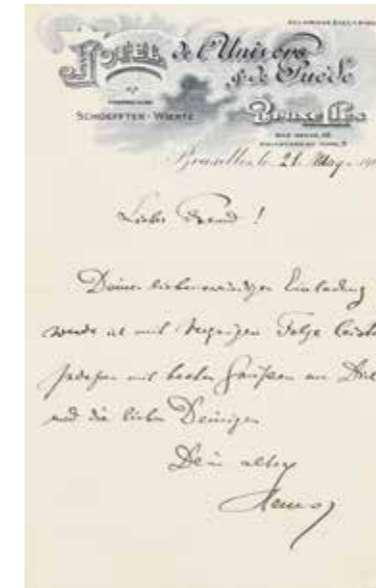 HOTEL de l'Univers
& de Suède
PROPRIETAIRE
SCHOEFFTER-WIERTZ
Bruxelles
Bruxelles, le 21. May
Lieber Freund!
Deiner liebenswürdigen Einladung
werde ich mit Vergnügen Folge
mit besten Grüßen an Dich
und die lieben Deinigen
Dein alter